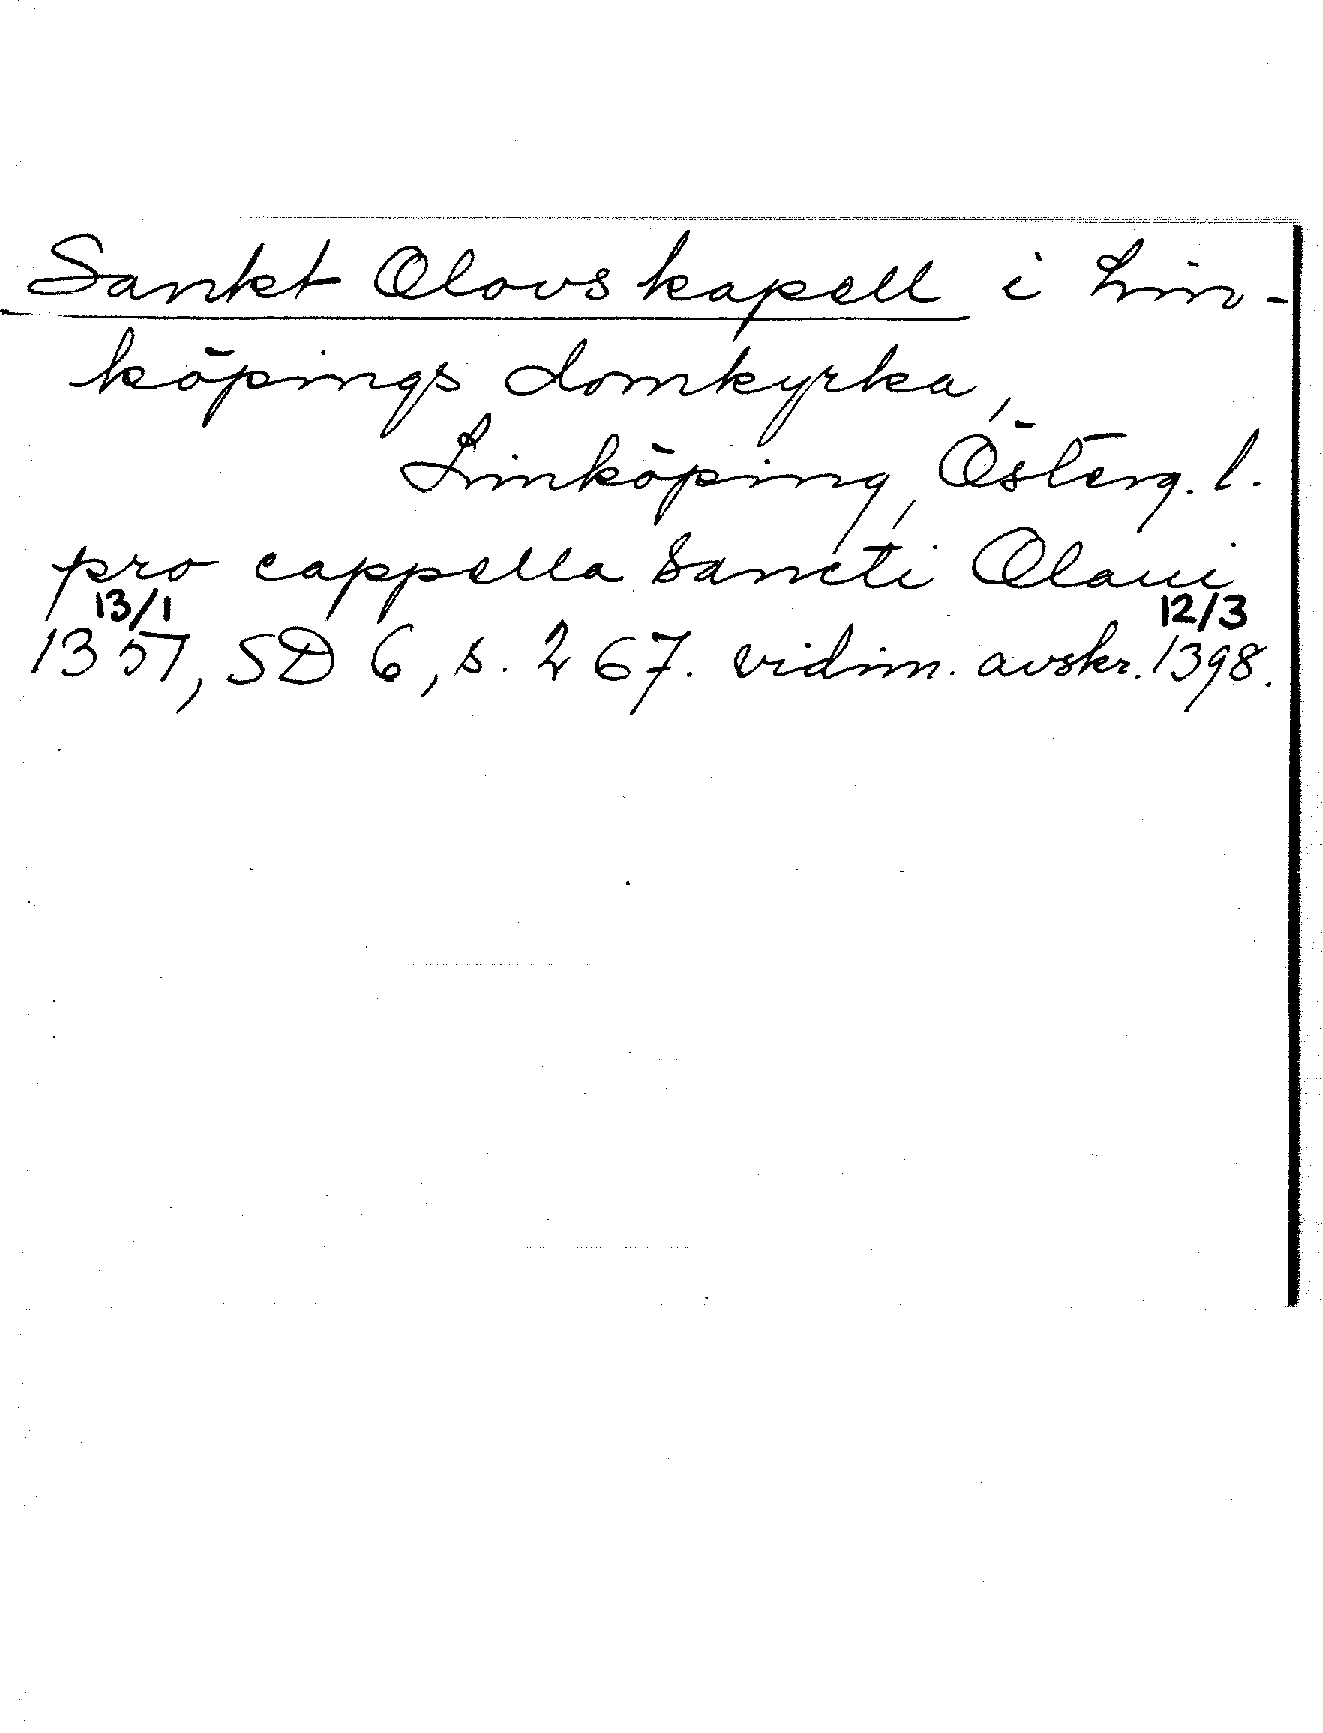 Sankt Olovs kapell i Lin-
köpings domkyrka,
Linköping, Österg. l.
pro cappella sancti Olaui
13/1 12/3
1351, SD 6, s. 267. vidim. avskr. 1398.